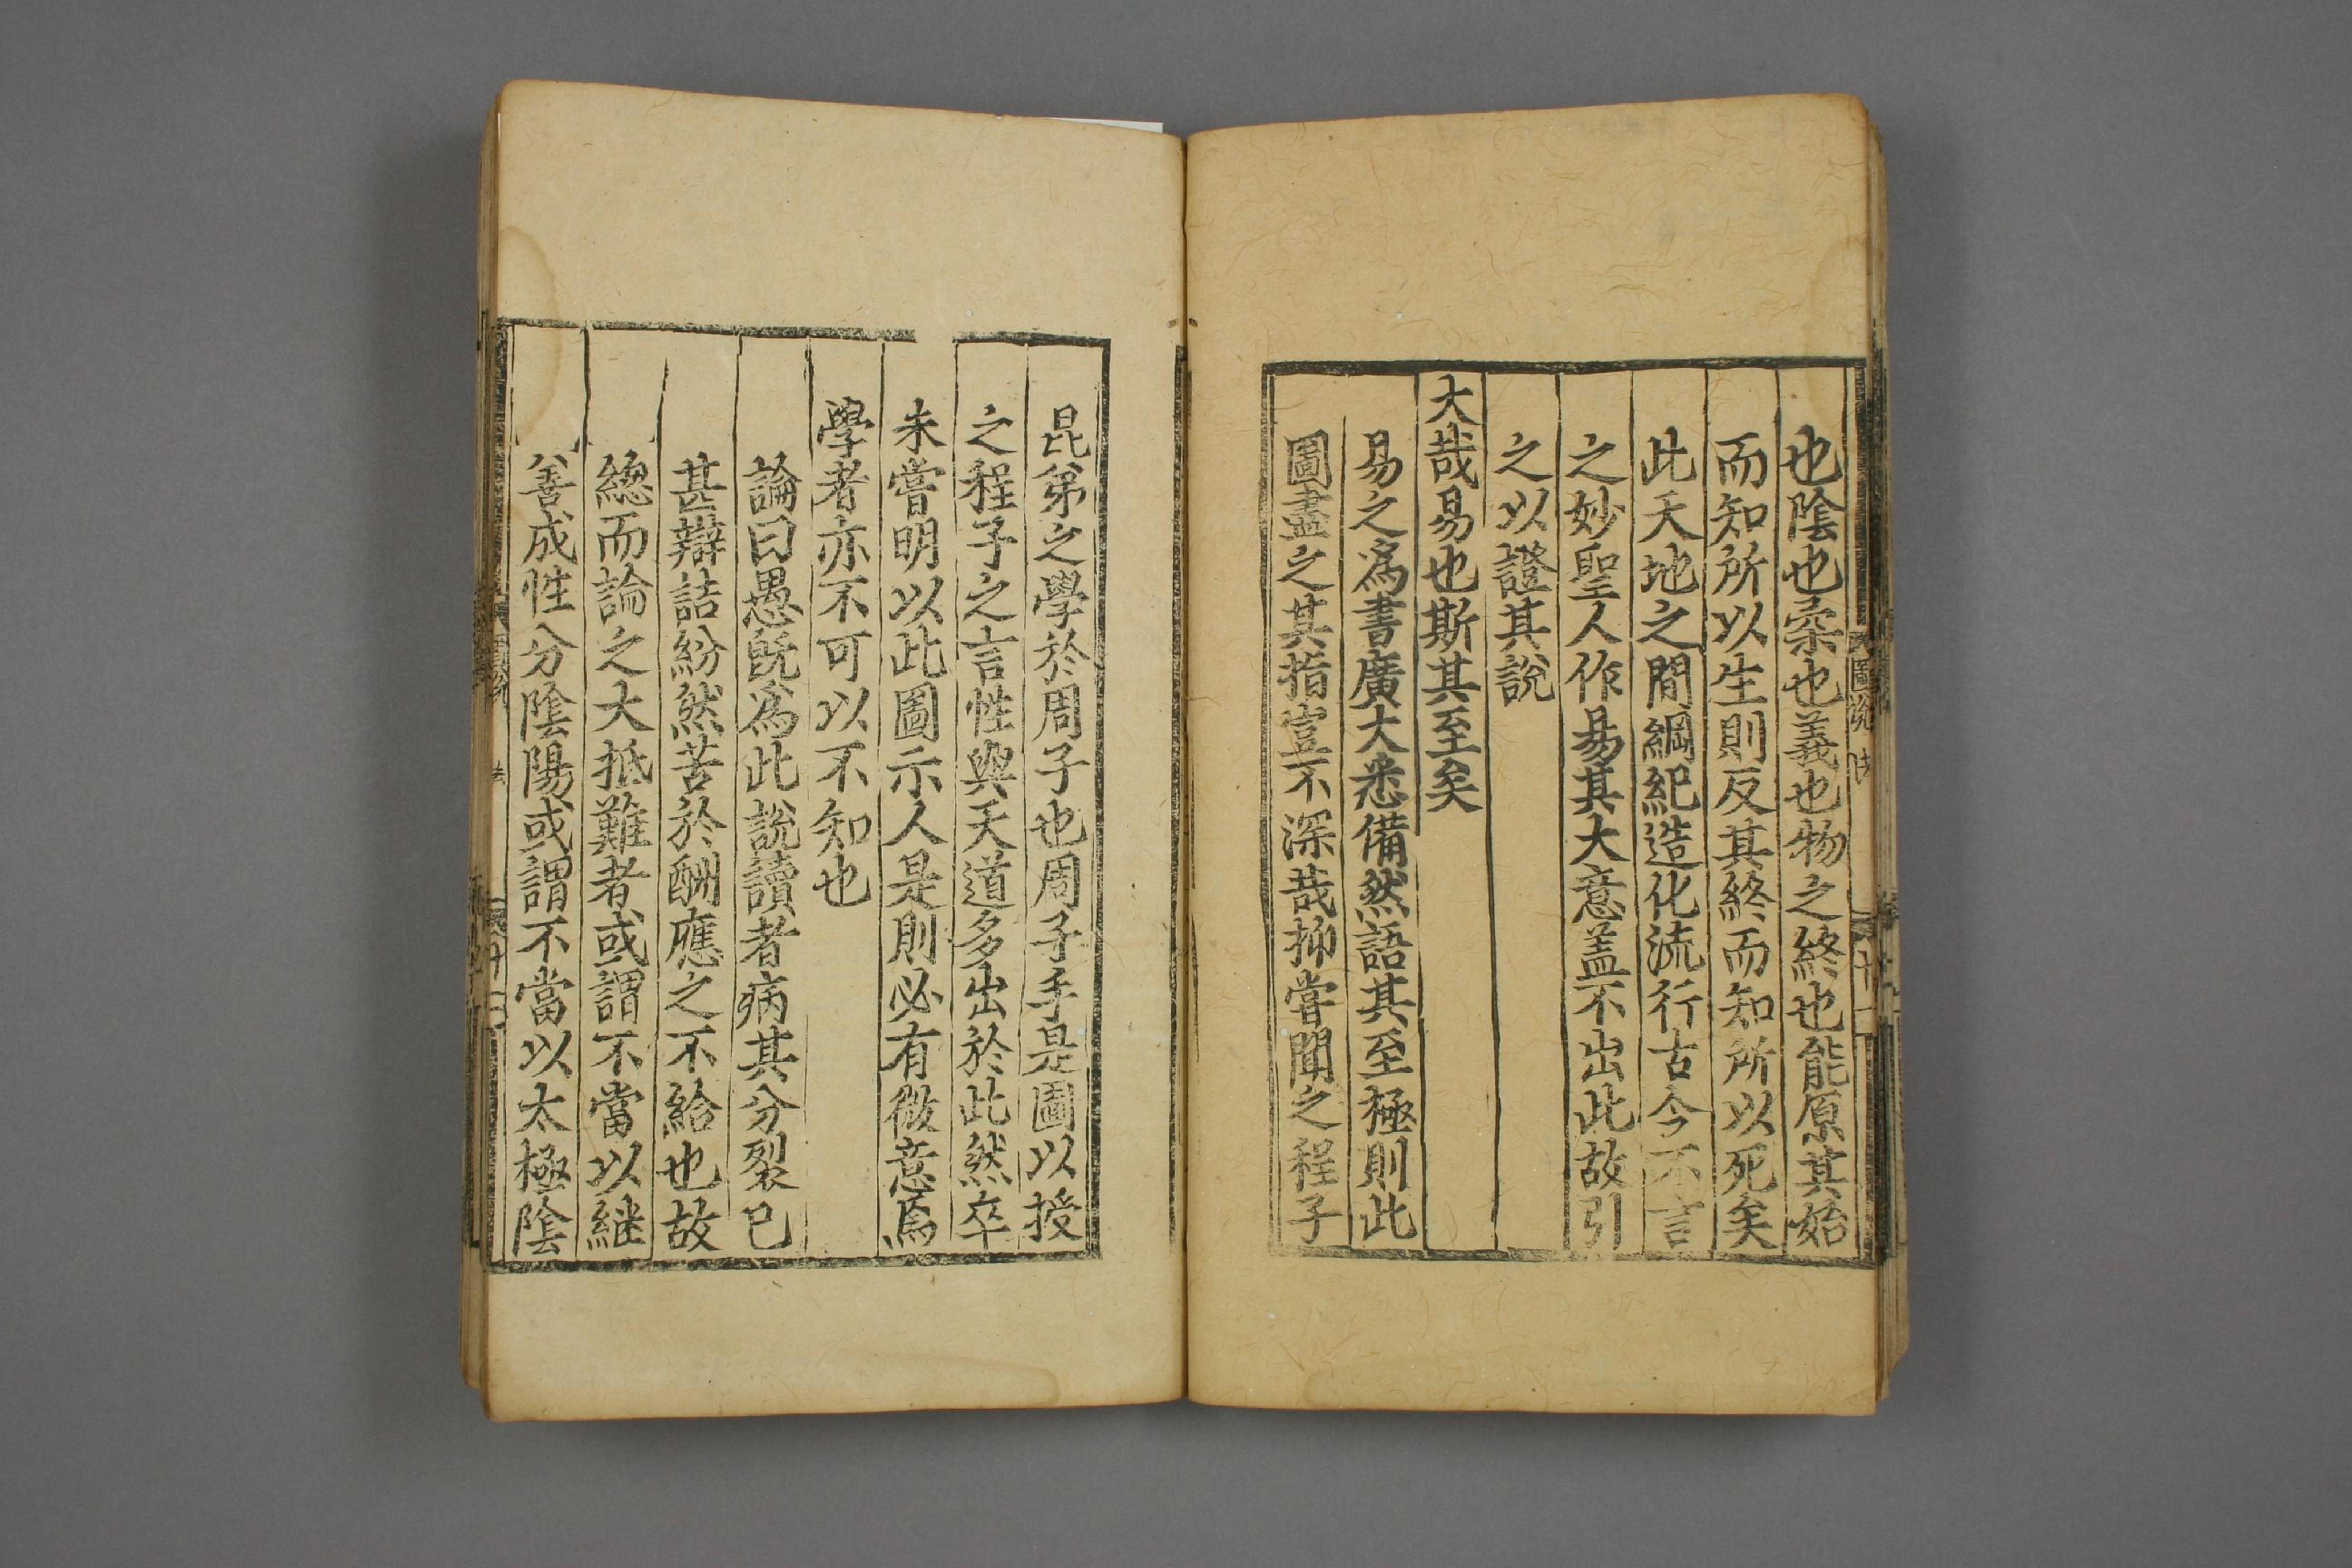 也陰也柔也義也物之終也能原其始
而知所以生則反其終而知所以死矣
此天地之間綱紀造化流行古今不言
之妙聖人作易其大意盖不出此故引
之以證其說
大哉易也斯其至矣
易之爲書廣大悉備然語其至極則此
圖盡之其指豈不深哉抑嘗聞之程子
昆弟之學於周子也周子手是圖以授
之程子之言性與天道多出於此然卒
未嘗明以此圖示人是則必有微意焉
學者亦不可以不知也
論曰愚旣爲此說讀者病其分裂已
甚辯詰紛然苦於酬應之不給也故
緫而論之大抵難者或謂不當以継
善成性分陰陽或謂不當以太極陰